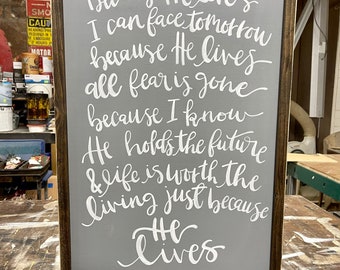 SMO
MOTOR
I can face tomorrow
because He lives
all fear is gone
because I know
He holds the future
& life is worth the
living just because
He
lives